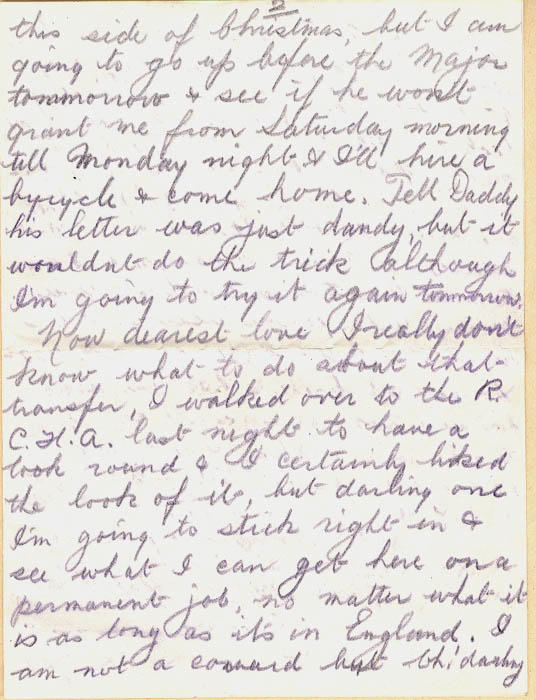 2
this side of Christmas, but I am
going to go up before the Major
tommorrow & see if he wont
grant me from Saturday morning
till Monday night & I'll hire a
bycycle & come home. Tell Daddy
his letter was just dandy, but it
wouldnt do the trick although
I'm going to try it again tommorrow.
Now dearest love I really don't
know what to do about that
transfer, I walked over to the R.
C.H.A. last night to have a
look round & I certainly liked
the look of it, but darling one
I'm going to stick right in &
see what I can get here on a
permanent job, no matter what it
is as long as it's in England. I
am not a coward but Oh! darling